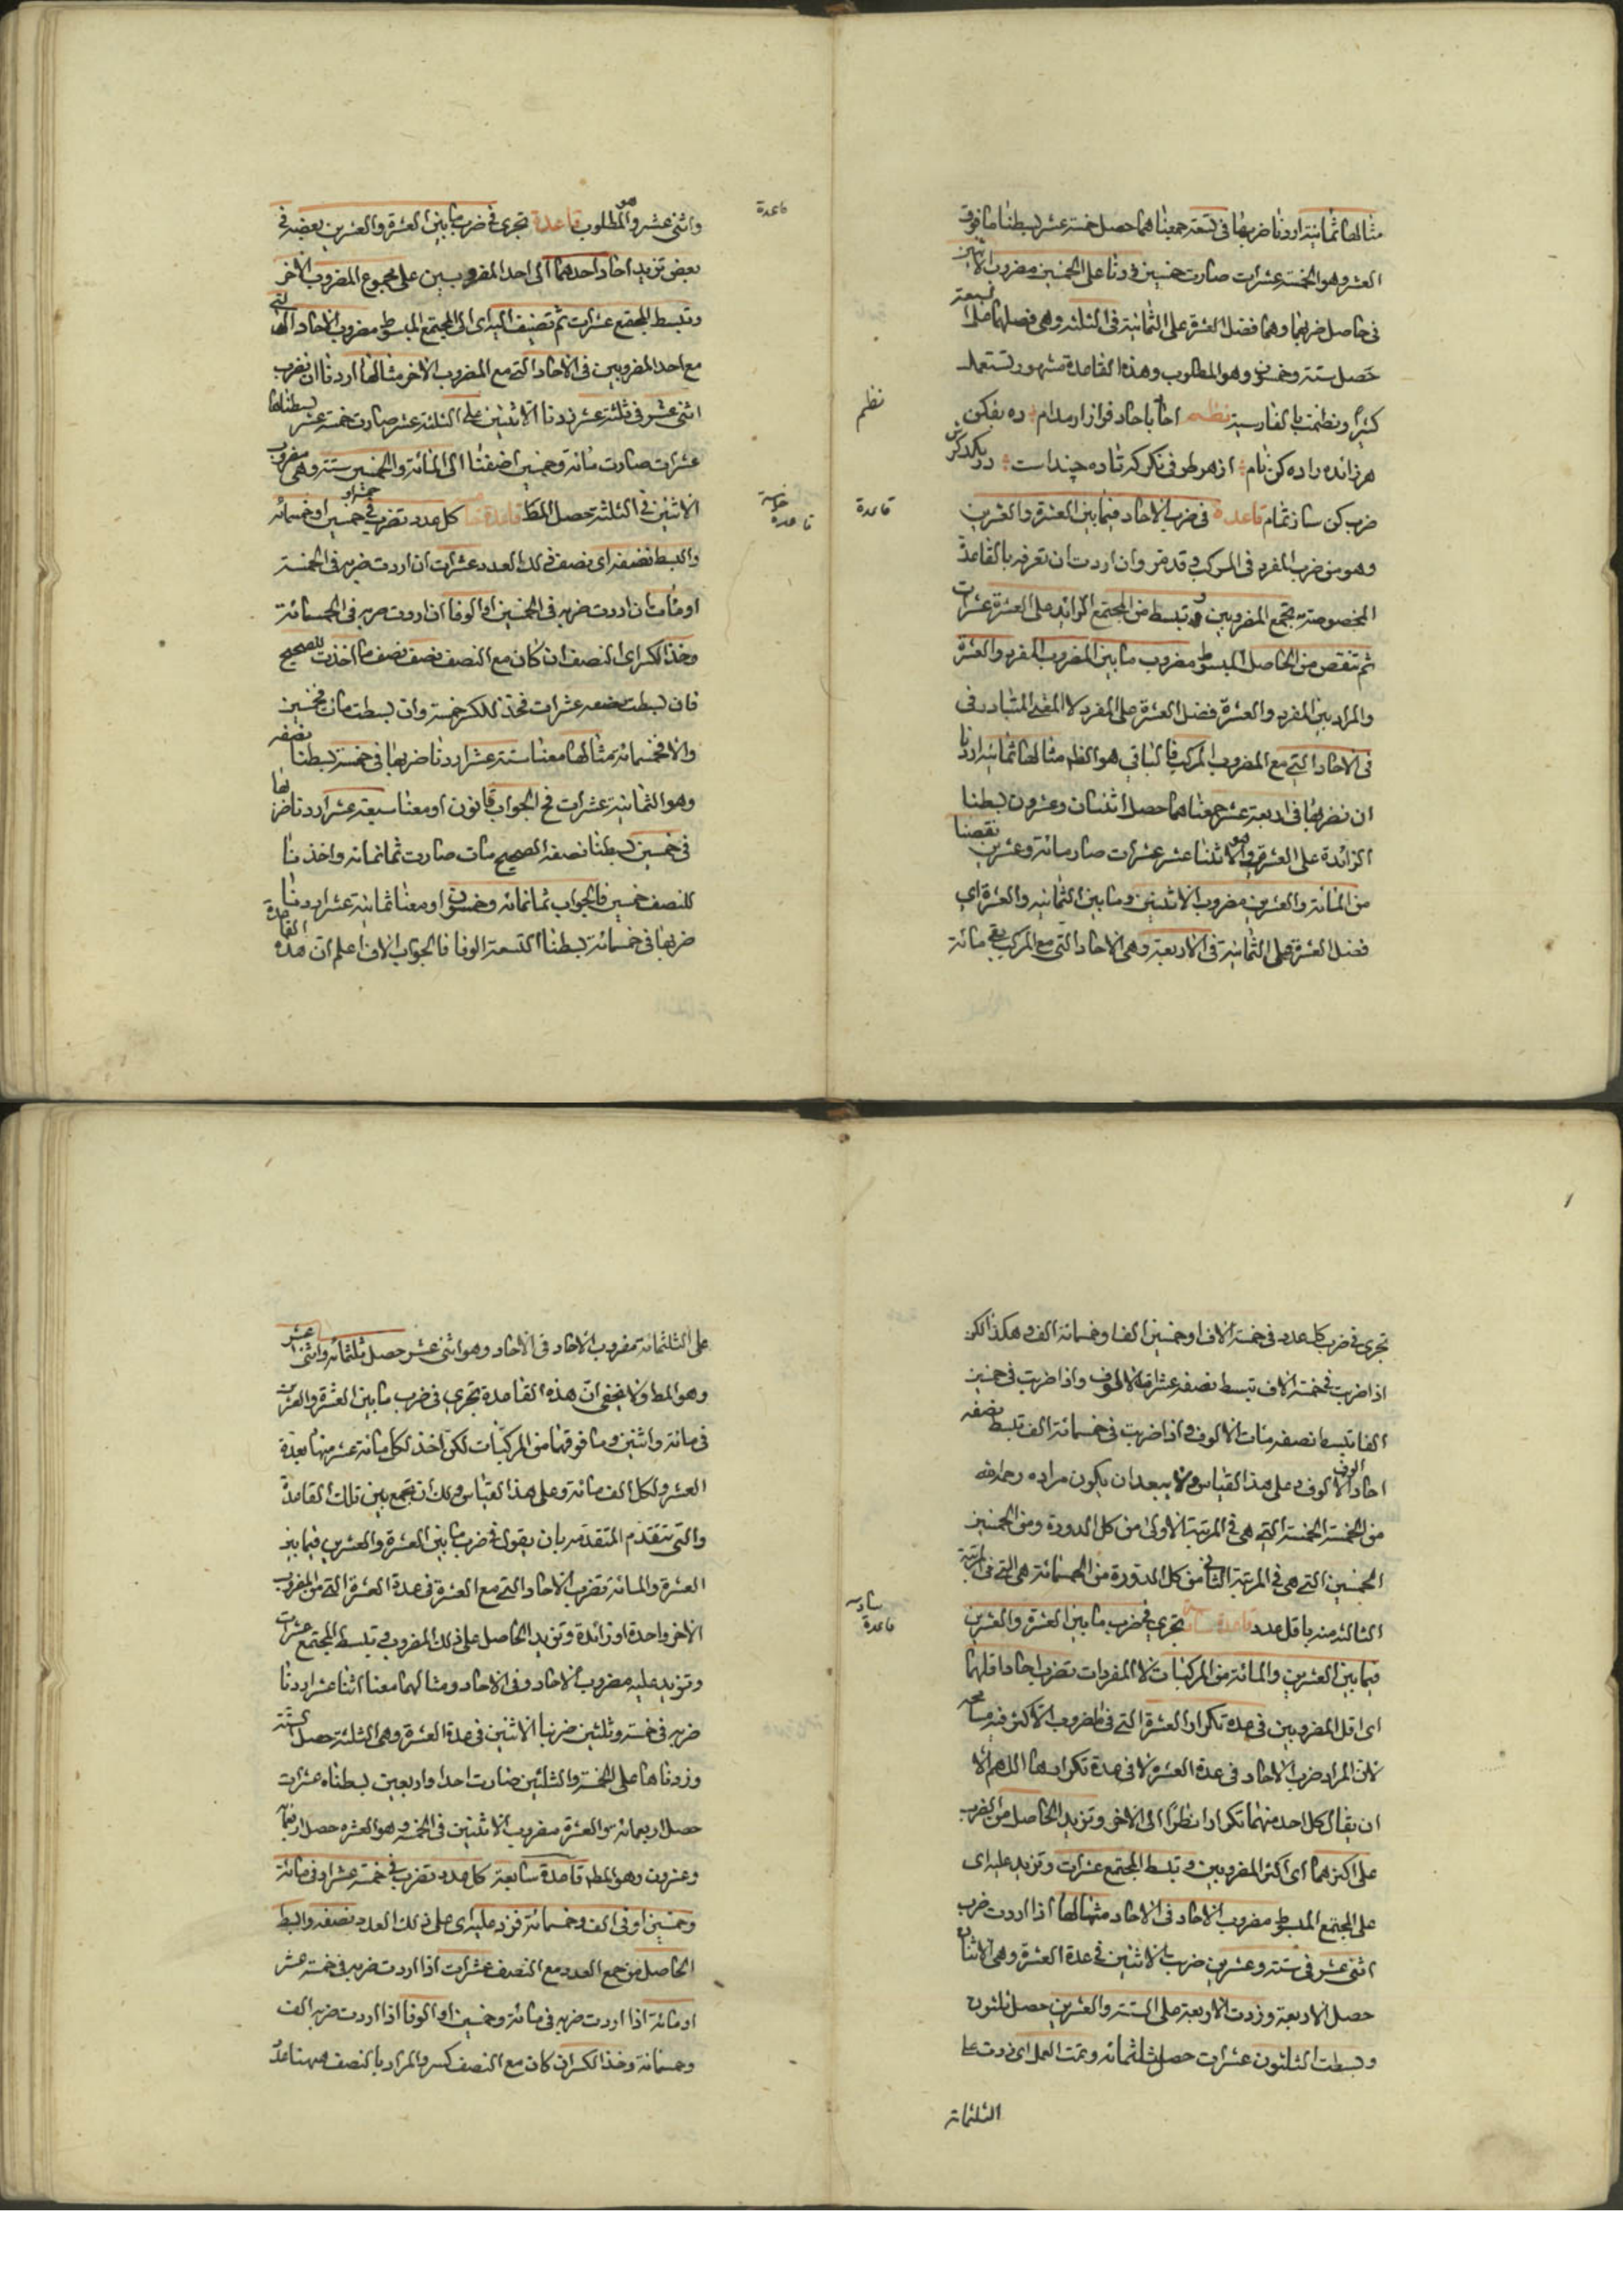 مثالها ثمانية اردنا ضربها فى تسعة جمعناهما حصل خمسة عشر بسطنا ما فوق
العشر وهو الخمسة عشرات صارت خمسين فزدنا على الخمسين مضروب الاثنين
فى حاصل ضربهما وهما فضل العشرة على الثمانية فى الثلثة وهى فصلها على تسعة
حصل ستة وخمسون وهو المطلوب وهذه القاعدة مشهورة تستعمل
كثيرًا ونظمت بالفارسية نظم احاد باحاد فراز ار مدام ده بفكن
نظم
هر زائده را ده كن نام از هر طرفى نكر كه تا ده چند است در يكديكرش
ضرب كن ساز تمام قاعدة فى ضرب الاحاد فيما بين العشرة والعشرين
قاعدة
وهو من ضرب المفرد فى المركب وقد مر وان اردت ان تعرفه بالقاعدة
المخصوصة به تجمع المضروبين وتبسط من المجتمع الزائد على العشرة عشرات
ثم تنقص من الحاصل المبسوط مضروب ما بين المضروب المفرد والعشرة
والمراد بين المفرد والعشرة فضل العشرة على المفرد لا المعنى المتبادر فى
فى الاحاد التى مع المضروب المركب فالباقى هو المط مثالها ثمانية اردنا
ان نضربها فى اربعة عشر جمعناهما حصل اثنان وعشرون بسطنا
الزائدة على العشرة وهو الاثنا عشر عشرات صار مائة وعشرين نقصنا
من المائة والعشرين مضروب الاثنين وما بين الثمانية والعشرة اى
فضل العشرة على الثمانية فى الاربعة وهى الاحاد التى مع المركب بقى مائة
واثنى عشر وهو المطلوب قاعدة تجرى فى ضرب ما بين العشرة والعشرين بعضه فى
قاعدة
بعض تزيد احاد احدهما الى احد المضروبين على مجموع المضروب الاخر
وتبسط المجتمع عشرات ثم تضيف اليه اى الى المجتمع المبسوط مضروب الاحاد التى
مع احد المضروبين فى الاحاد التى مع المضروب الاخر مثالها اردنا ان نضرب
اثنى عشر فى ثلثة عشر زدنا الاثنين على الثلثة عشر صارت خمسة عشر بسطناها
عشرات صارت مائة وخمسين اضفنا الى المائة والخمسين ستة وهى مضروب
الاثنين فى الثلثة حصل المط قاعدة كل عدد تضرب فى خمسة او خمسين او خمسمائة
خامسة
قاعدة
وابسط نصفه اى نصف ذلك العدد عشرات ان اردت ضربه فى الخمسة
او مئات ان اردت ضربه فى الخمسين او الوفا ان اردت ضربه فى الخمسمائة
وخذ الكسر اى النصف ان كان مع النصف نصف نصف ما اخذت للصحيح
فان بسطت نصفه عشرات فخذ للكسر خمسة وان بسطت مئات فخمسين
والا فخمسمائة مثالها معنا ستة عشر اردنا ضربها فى خمسة بسطنا نصفه
وهو الثمانية عشرات فح الجواب ثمانون او معنا سبعة عشر اردنا ضربها
فى خمسين بسطنا نصفه الصحيح مئات صارت ثمانمائة واخذنا
للنصف خمسين فالجواب ثمانمائة وخمسون او معنا ثمانية عشر اردنا
ضربها فى خمسمائة بسطنا التسعة الوفا فالجواب الاف اعلم ان هذه القاعدة
تجرى فى ضرب كل عدد فى خمسة الاف او خمسين الفا وخمسمائة الف وهكذا لكن
اذا ضرب فى خمسة الاف تبسط نصفه عشرات الالوف واذا ضرب فى خمسين
الفا تبسط نصفه مئات الالوف واذا ضربت فى خمسمائة الف تبسط نصفه
احاد الالوف الوف وعلى هذا القياس ولا يبعد ان يكون مراده رحمه الله
من الخمسة الخمسة التى هى فى المرتبة الاولى من كل الدورة ومن الخمسين
الخمسين التى هى فى المرتبة الثانى من كل الدورة من الخمسمائة هى التى فى المرتبة
الثالثة منه باقل عدد قاعدة سادسة تجرى فى ضرب ما بين العشرة والعشرين
سادسه
قاعدة
فيما بين العشرين والمائة من المركبات لا المفردات تضرب احاد اقلهما
اى اقل المضروبين فى عدة تكرار العشرة التى فى المضروب الاكثر فيه مسامحه
لان المراد ضرب الاحاد فى عدة العشرة لا فى عدة تكرارها اللهم الا
ان يقال كل احد منهما تكرارا نظرًا الى الاخر وتزيد الحاصل من الضرب
على اكثرهما اى اكثر المضروبين وتبسط المجتمع عشرات وتزيد عليه اى
على المجتمع المبسوط مضروب الاحاد فى الاحاد مثالها اذا اردت ضرب
اثنى عشر فى ستة وعشرين ضربت الاثنين فى عدة العشرة وهى الاثنان
حصل الاربعة وزدت الاربعة على الستة والعشرين حصل ثلثون
وبسطت الثلثون عشرات حصل ثلثمائة وتمت العمل اى زدت على
الثلثمائة
على الثلثمائة مضروب الاحاد فى الاحاد وهو اثنى عشر حصل ثلثمائة واثنى عشر
وهو المط ولا يخفى ان هذه القاعدة تجرى فى ضرب ما بين العشرة والعشرين
فى مائة واثنين وما فوقها من المركبات لكن اخذ لكل مائة عشر منها بعدة
العشر ولكل الف مائة وعلى هذا القياس ولك ان تجمع بين تلك القاعدة
والتى تتقدم المتقدمة بان يقول فى ضرب ما بين العشرة والعشرين فيما بين
العشرة والمائة تضرب الاحاد التى مع العشرة فى عدة العشرة التى من المضروب
الاخر واحدة او زائدة وتزيد الحاصل على ذلك المضروب وتبسط المجتمع عشرات
وتزيد عليه مضروب الاحاد فى الاحاد ومثالهما معنا اثنا عشر اردنا
ضربه فى خمسة وثلثين ضربنا الاثنين فى عدة العشرة وهى الثلثة حصل ستة
وزدناها على الخمسة والثلثين صارت احدا واربعين بسطناه عشرات
حصل اربعمائة والعشرة مضروب الاثنين فى الخمسة وهو العشرة حصل اربعمائة
وعشرون وهو المط قاعدة سابعة كل عدد تضرب فى خمسة عشر او فى مائة
وخمسين او فى الف وخمسمائة فزد عليه اى على ذلك العدد نصفه وابسط
الحاصل من جمع العدد مع النصف عشرات اذا اردت ضربه فى خمسة عشر
او مائة اذا اردت ضربه فى مائة وخمسين او الوفا اذا اردت ضربه الف
وخمسمائة وخذ الكسر ان كان مع النصف كسر والمراد بالنصف ههنا عدّ